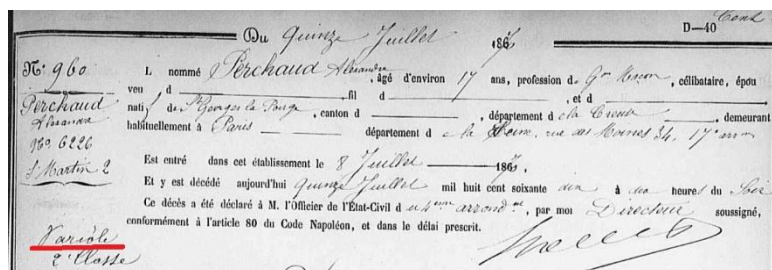 Cent
Du Quinze Juillet 1870 D—40
N° 960
Perchaud
Alexandre
960. 6226
St Martin 2
Variole
2e Classe
L nommé Perchaud Alexandre, âgé d'environ 17 ans, profession de Gon Maçon, célibataire, épou
veu d , fil d , et d
natif de St Georges la Pouge, canton d , département d e la Creuse, demeurant
habituellement à Paris département d e la Seine, rue des Moines 34, 17e arr
Est entré dans cet établissement le 8 Juillet 1870.
Et y est décédé aujourd'hui Quinze Juillet mil huit cent soixante dix à heures du Soir
Ce décès a été déclaré à M. l'Officier de l'État-Civil d u 4eme arrondt, par moi Directeur soussigné,
conformément à l'article 80 du Code Napoléon, et dans le délai prescrit.